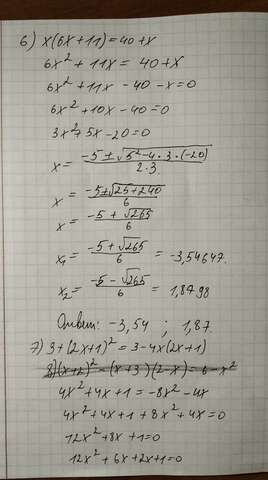 6) x(6x+11)=40+x
6x² + 11x = 40+x
6x² + 11x - 40 - x = 0
6x² + 10x - 40 = 0
3x² + 5x - 20 = 0
x = (-5 ± √(5² - 4·3·(-20)))/(2·3)
x = (-5 ± √(25+240))/6
x = (-5 ± √265)/6
x₁ = (-5 + √265)/6 = -3,54647.
x₂ = (-5 - √265)/6 = 1,8798
Ответ: -3,54 ; 1,87.
7) 3+(2x+1)² = 3-4x(2x+1)
8)(x+2)² - (x+3)(2-x) = 6-x²
4x² + 4x + 1 = -8x² - 4x
4x² + 4x + 1 + 8x² + 4x = 0
12x² + 8x + 1 = 0
12x² + 6x + 2x + 1 = 0